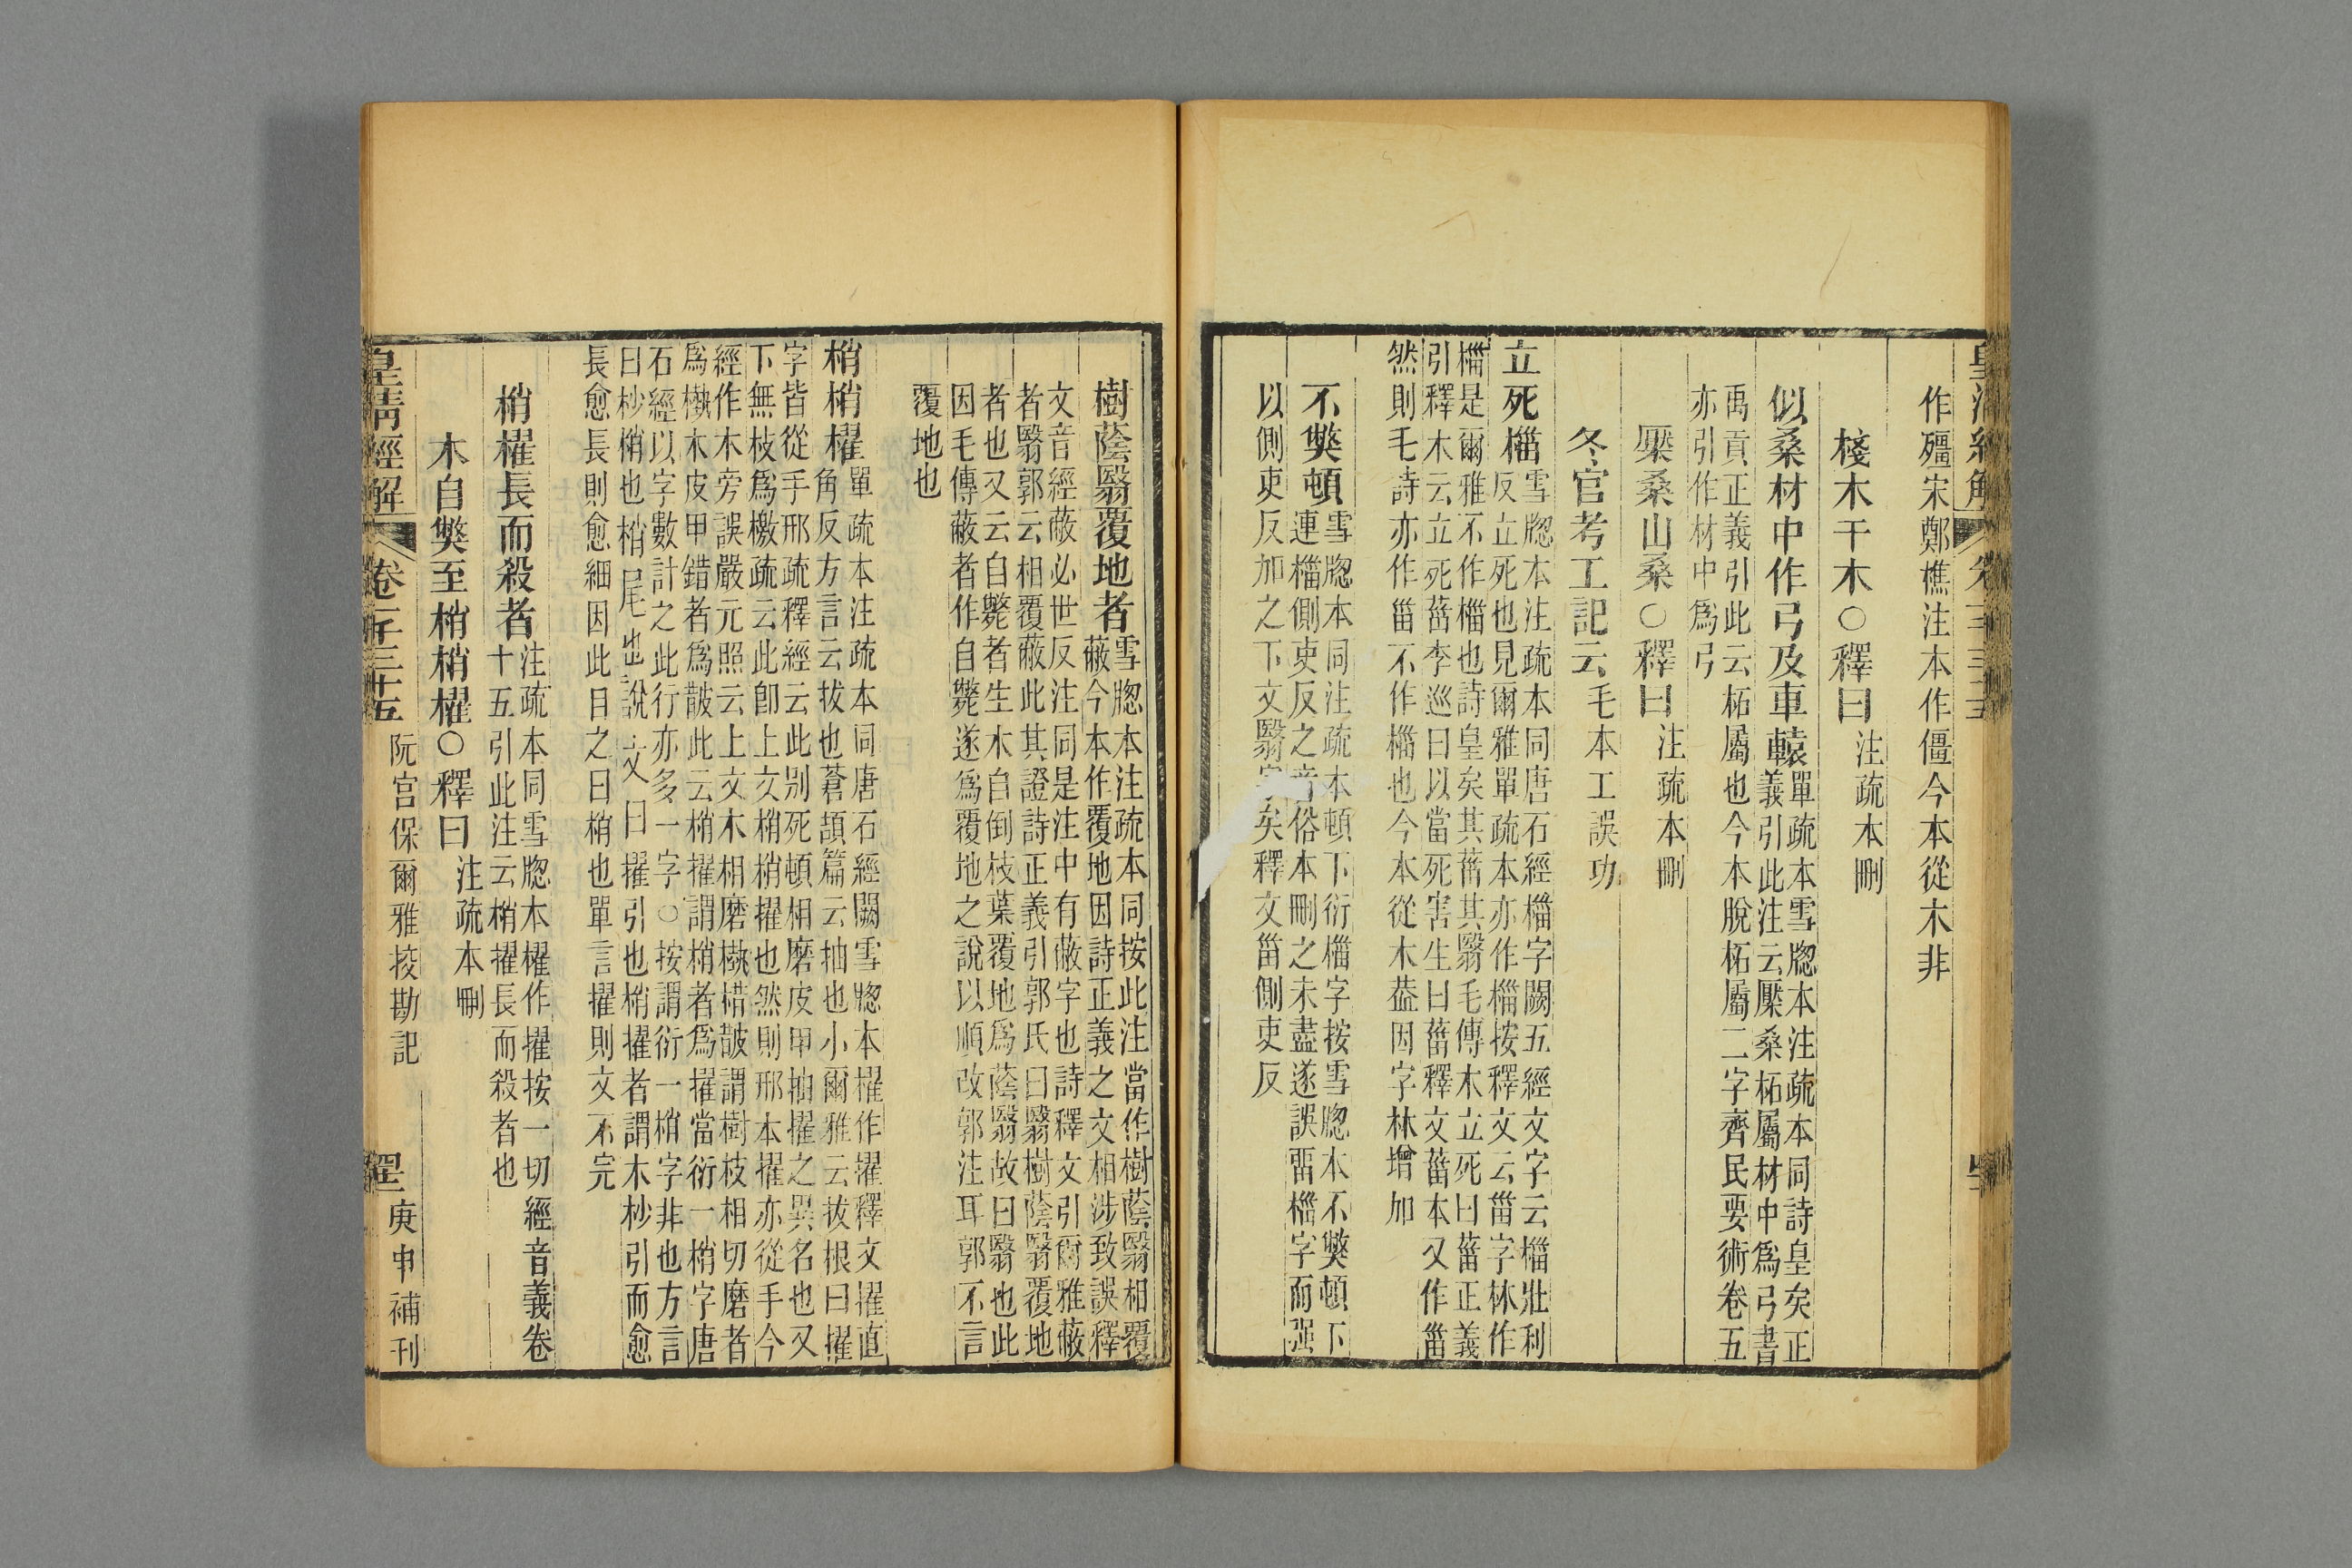 作殭宋鄭樵注本作僵今本從木非
棧木干木○釋曰注疏本刪
似桑材中作弓及車轅單疏本雪牕本注疏本同詩皇矣正
義引此注云檿桑柘屬材中爲弓書
禹貢正義引此云柘屬也今本脫柘屬二字齊民要術卷五
亦引作材中爲弓
檿桑山桑○釋曰注疏本刪
冬官考工記云毛本工誤功
立死椔雪牕本注疏本同唐石經椔字闕五經文字云椔壯利
反立死也見爾雅單疏本亦作椔按釋文云甾字林作
椔是爾雅不作椔也詩皇矣其菑其翳毛傳木立死曰菑正義
引釋木云立死菑李巡曰以當死害生曰菑釋文菑本又作甾
然則毛詩亦作甾不作椔也今本從木葢因字林增加
不獘頓雪牕本同注疏本頓下衍椔字按雪牕本不獘頓下
連椔側吏反之音俗本刪之未盡遂誤畱椔字而强
以側吏反加之下文翳字矣釋文甾側吏反
樹蔭翳覆地者雪牕本注疏本同按此注當作樹蔭翳相覆
蔽今本作覆地因詩正義之文相涉致誤釋
文音經蔽必世反注同是注中有蔽字也詩釋文引爾雅蔽
者翳郭云相覆蔽此其證詩正義引郭氏曰翳樹蔭翳覆地
者也又云自斃者生木自倒枝葉覆地爲蔭翳故曰翳也此
因毛傳蔽者作自斃遂爲覆地之說以順改郭注耳郭不言
覆地也
梢梢櫂單疏本注疏本同唐石經闕雪牕本櫂作擢釋文擢直
角反方言云拔也蒼頡篇云抽也小爾雅云拔根曰擢
字皆從手邢疏釋經云此別死頓相磨皮甲抽擢之異名也又
下無枝爲檄疏云此卽上文梢梢擢也然則邢本擢亦從手今
經作木旁誤嚴元照云上文木相磨槸棤皵謂樹枝相切磨者
爲槸木皮甲錯者爲皵此云梢擢謂梢者爲擢當衍一梢字唐
石經以字數計之此行亦多一字○按謂衍一梢字非也方言
曰杪梢也梢尾也說文曰擢引也梢擢者謂木杪引而愈
長愈長則愈細因此目之曰梢也單言擢則文不完
梢櫂長而殺者注疏本同雪牕本櫂作擢按一切經音義卷
十五引此注云梢擢長而殺者也
木自獘至梢梢櫂○釋曰注疏本刪
皇清經解 卷一千三十五 阮宮保爾雅挍勘記 庚申補刊